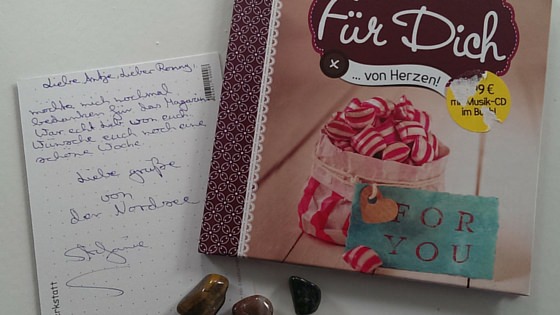 Liebe Antje, lieber Ronny,
möchte mich nochmal
bedanken für das Magazin
War echt lieb von euch
Wünsche euch noch eine
schöne Woche
Liebe grüße
von
der Nordsee
Stefanie
rkstatt
Für Dich
... von Herzen!
99 €
mit Musik-CD
im Buch!
FOR
YOU